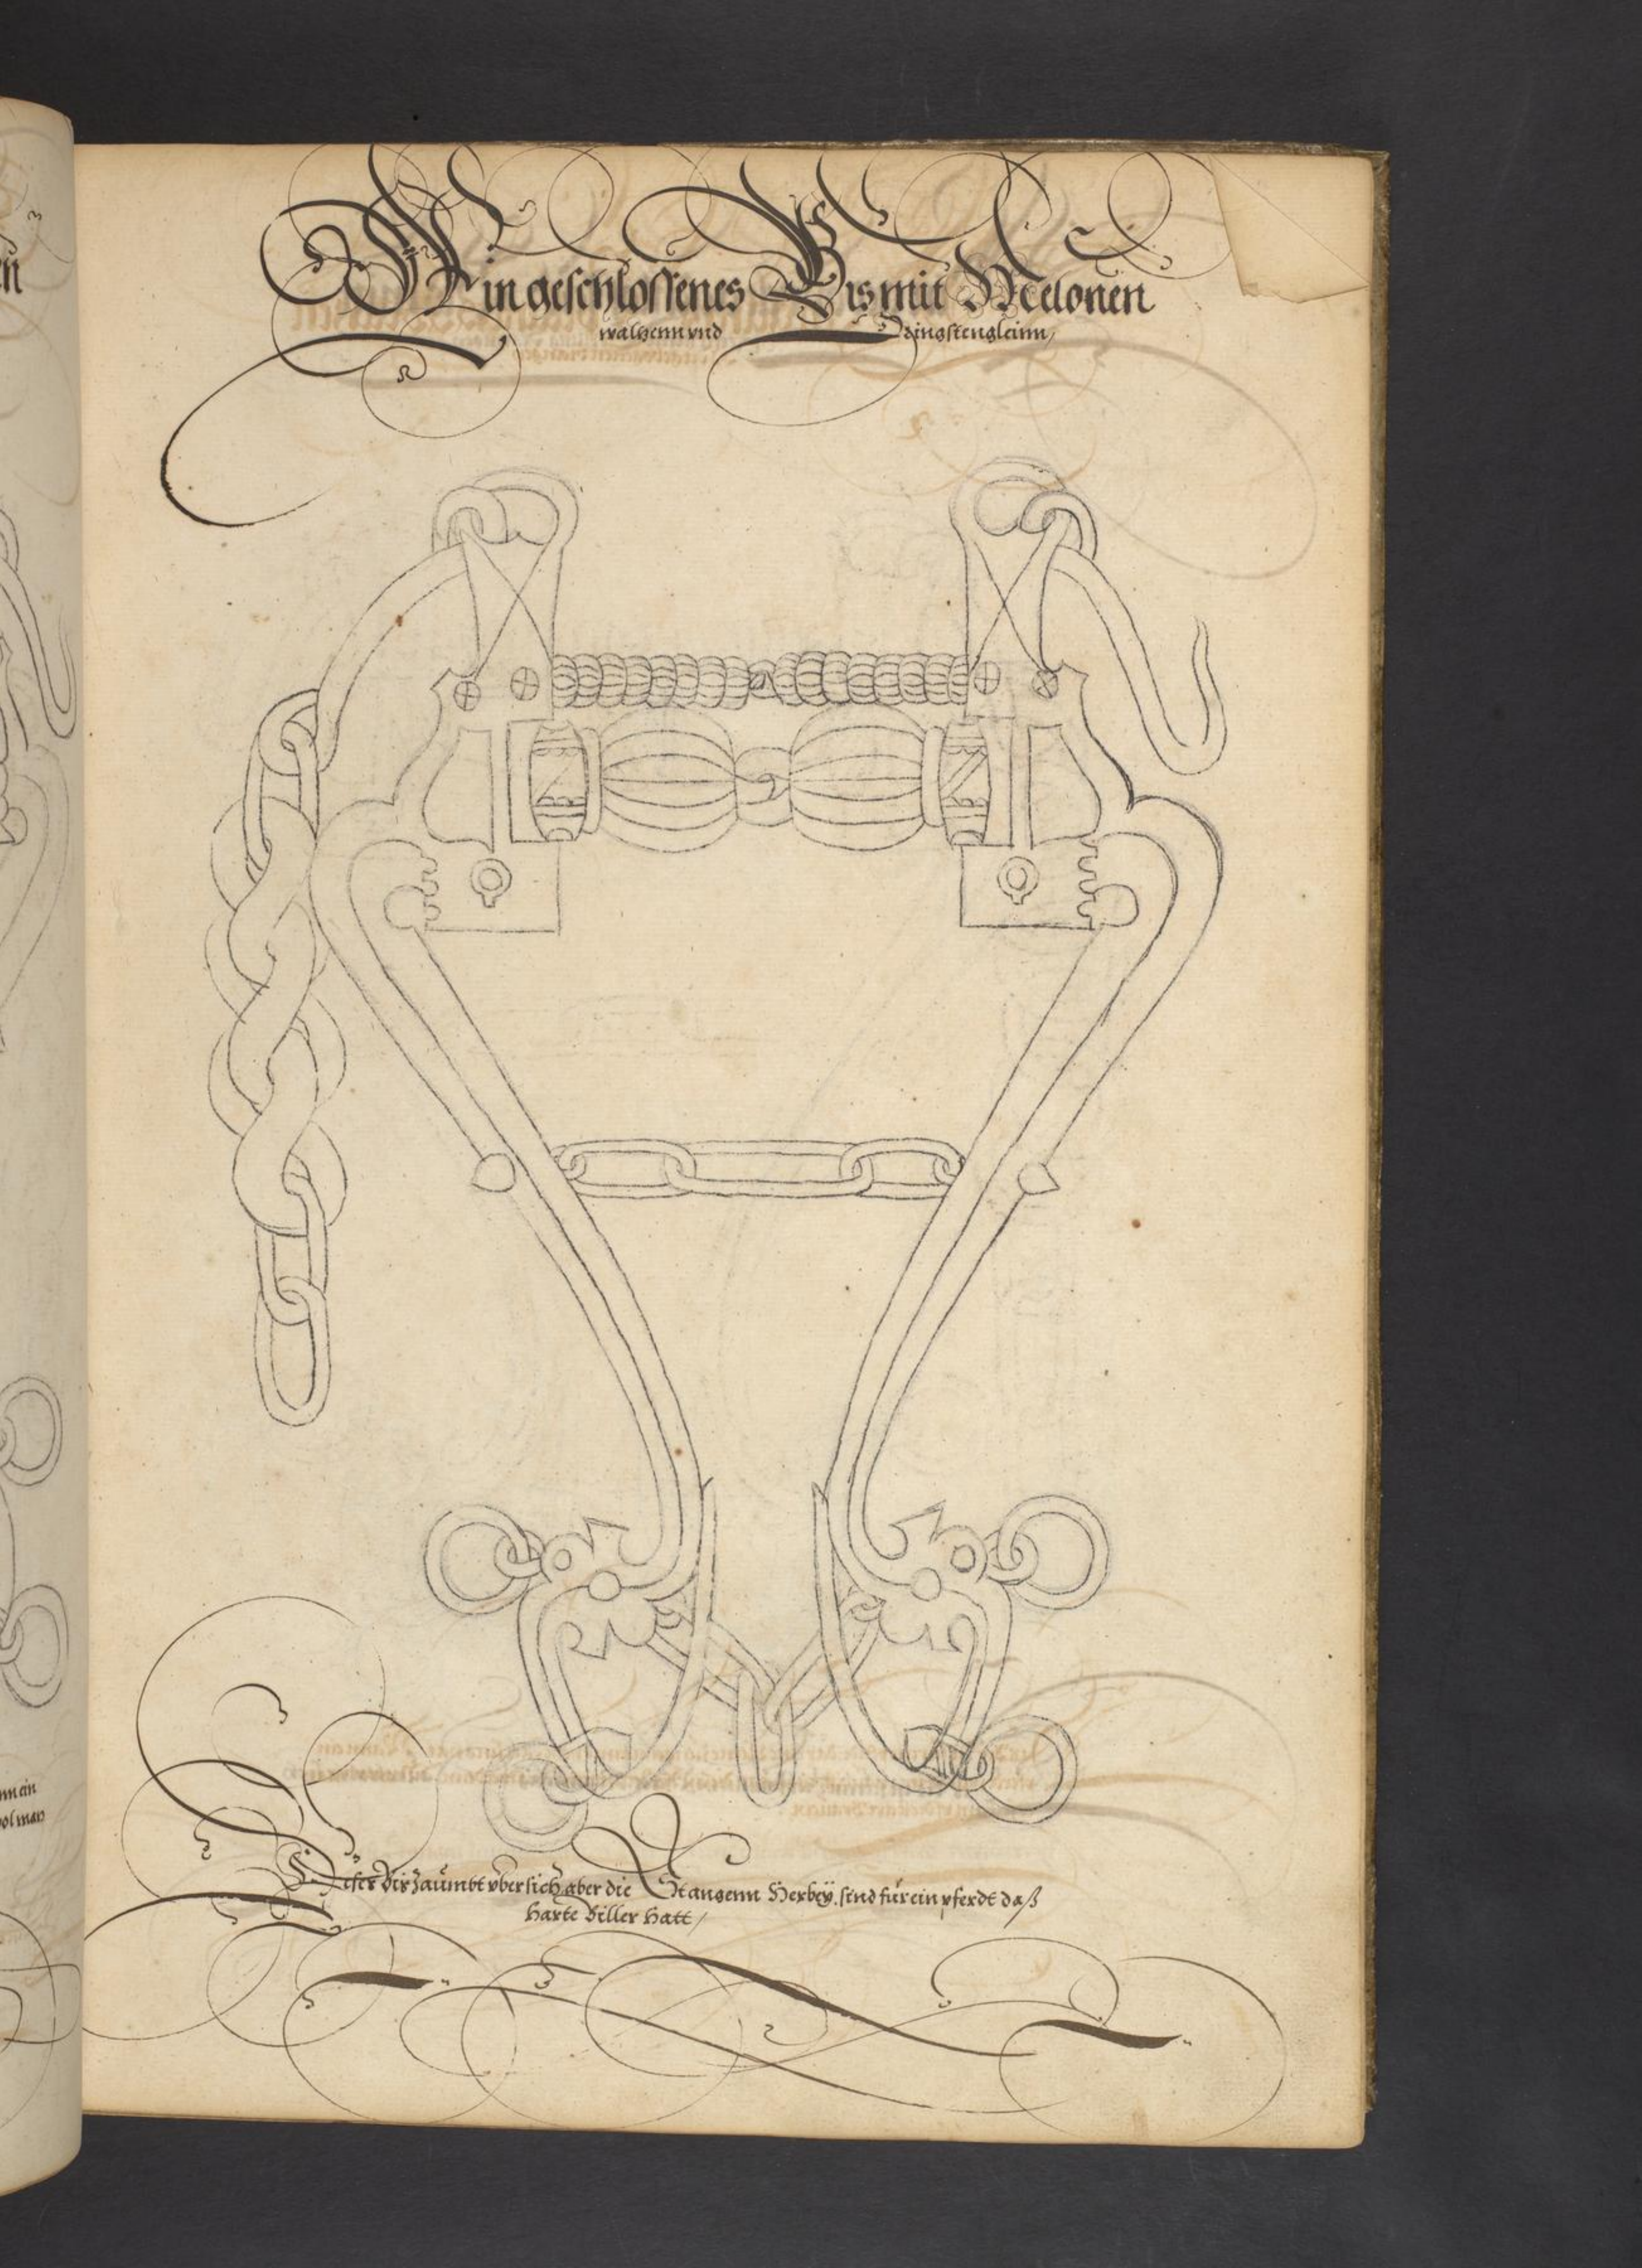 Ein geschlossenes Bis mit Melonen
walzenn vnd Ringstengleinn,
Diser Bis zaumbt vber sich, aber die Stangenn Herbey, sind für ein pferdt daß
harte Biller hatt,
en
nn ein
wol man